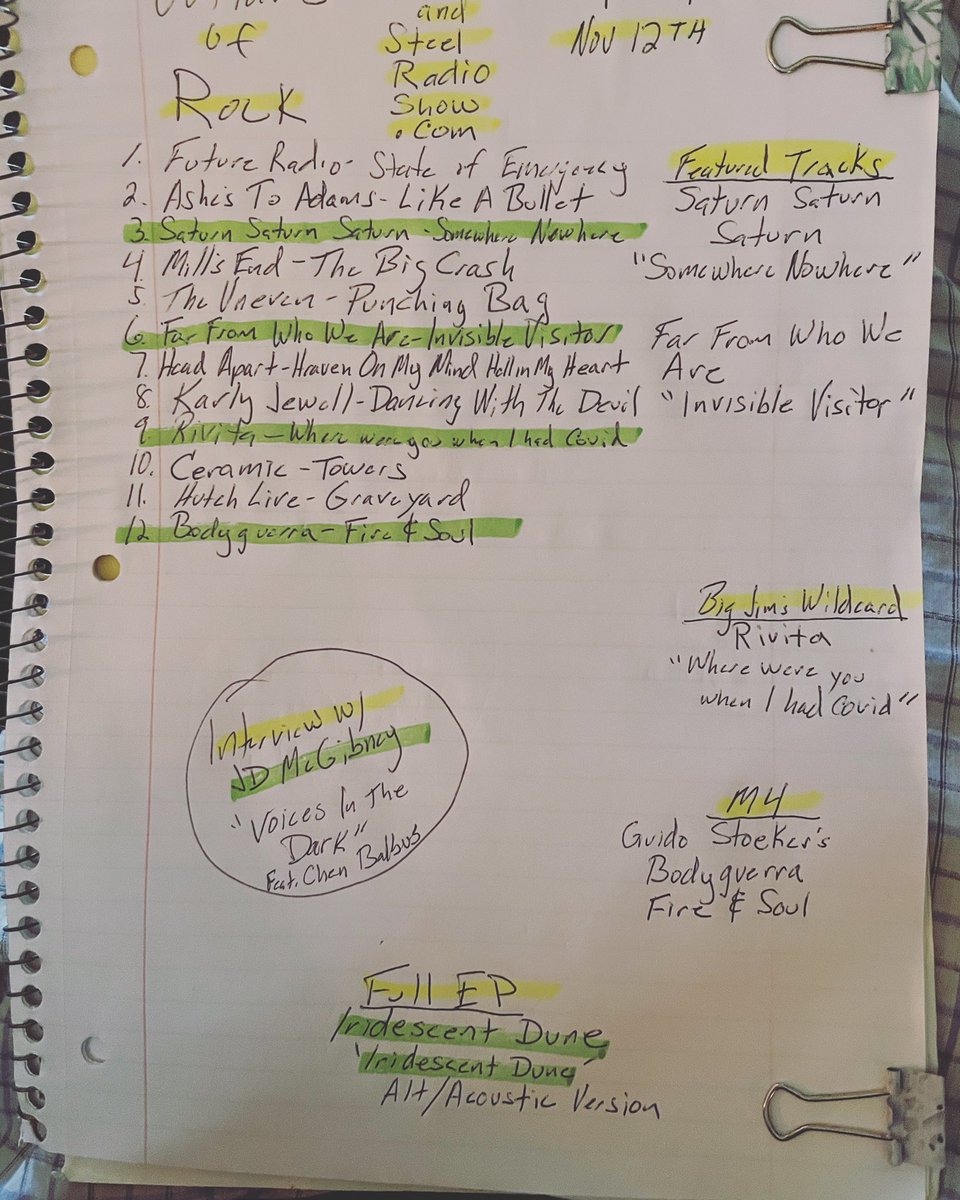 of
Rock
and
Steel
Radio
Show
.com
Nov 12TH
1. Future Radio- State of Emergency
2. Ashes To Adams-Like A Bullet
3. Saturn Saturn Saturn -Somewhere Nowhere
4. Mill's End-The Big Crash
5. The Uneven-Punching Bag
6. Far From Who We Are-Invisible Visitor
7. Head Apart-Heaven On My Mind Hell in My Heart
8. Karly Jewell-Dancing With The Devil
9. Rivita-Where were you when I had Covid
10. Ceramic-Towers
11. Hutch Live-Graveyard
12. Bodyguerra-Fire & Soul
Featured Tracks
Saturn Saturn
Saturn
"Somewhere Nowhere"
Far From Who We
Are
"Invisible Visitor"
Big Jim's Wildcard
Rivita
"Where were you
when I had Covid"
Interview w/
JD McGibney
"Voices In The
Dark"
Feat. Chen Balbus
M4
Guido Stoeker's
Bodyguerra
Fire & Soul
Full EP
Iridescent Dune
"Iridescent Dune"
Alt/Acoustic Version